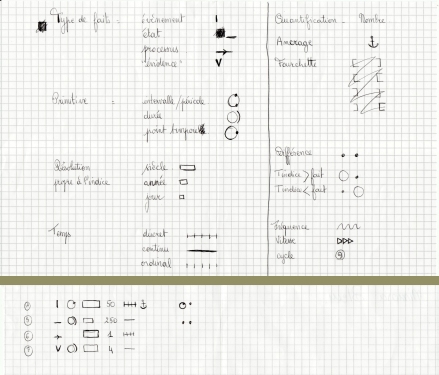 Type de faits = évènement
état
processus
"évidence"
Primitive = intervalle/période
durée
point temporel
Résolution siècle
propre à l'indice année
jour
Temps discret
continu
ordinal
Quantification - Nombre
Ancrage
Fourchette
Différence
T indice > fait
T indice < fait
Fréquence
Vitesse
cycle
50
250
1
4